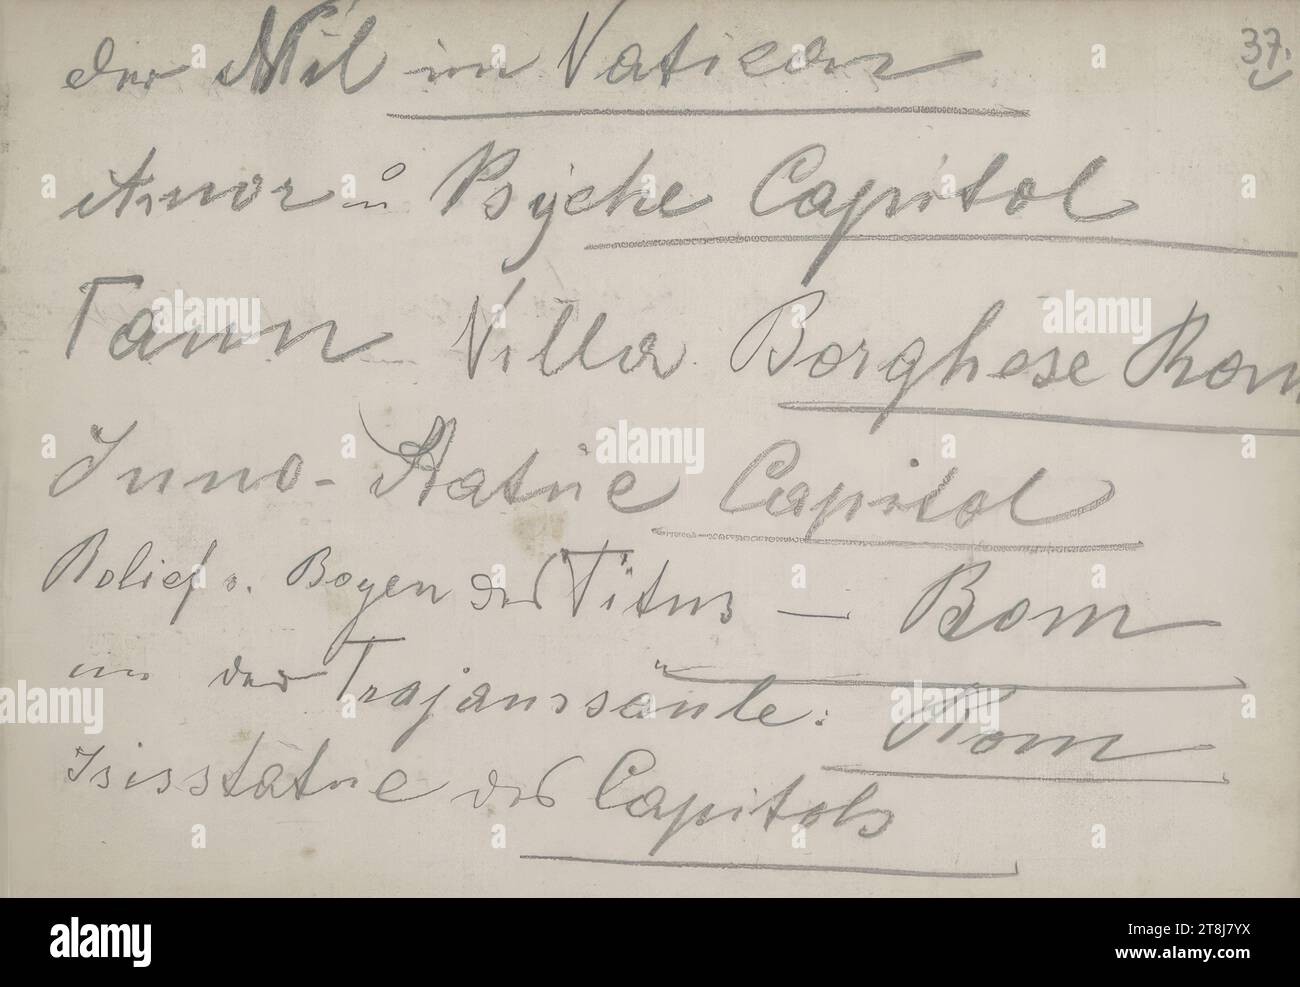 der Nil im Vatican
37.
Amor u Psyche Capitol
Faun Villa Borghese Rom
Juno-Statue Capitol
Relief v. Bogen des Titus — Rom
" der Trajanssäule: Rom
Isisstatue des Capitols
alamy
Image ID: 2T8J7YX
www.alamy.com